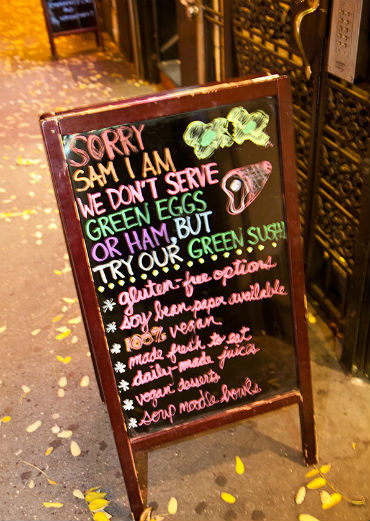 SORRY
SAM I AM
WE DON'T SERVE
GREEN EGGS
OR HAM, BUT
TRY OUR GREEN SUSHI
gluten-free options
soy bean paper available
100% vegan
made fresh to eat
daily-made juices
vegan desserts
soup noodle bowls